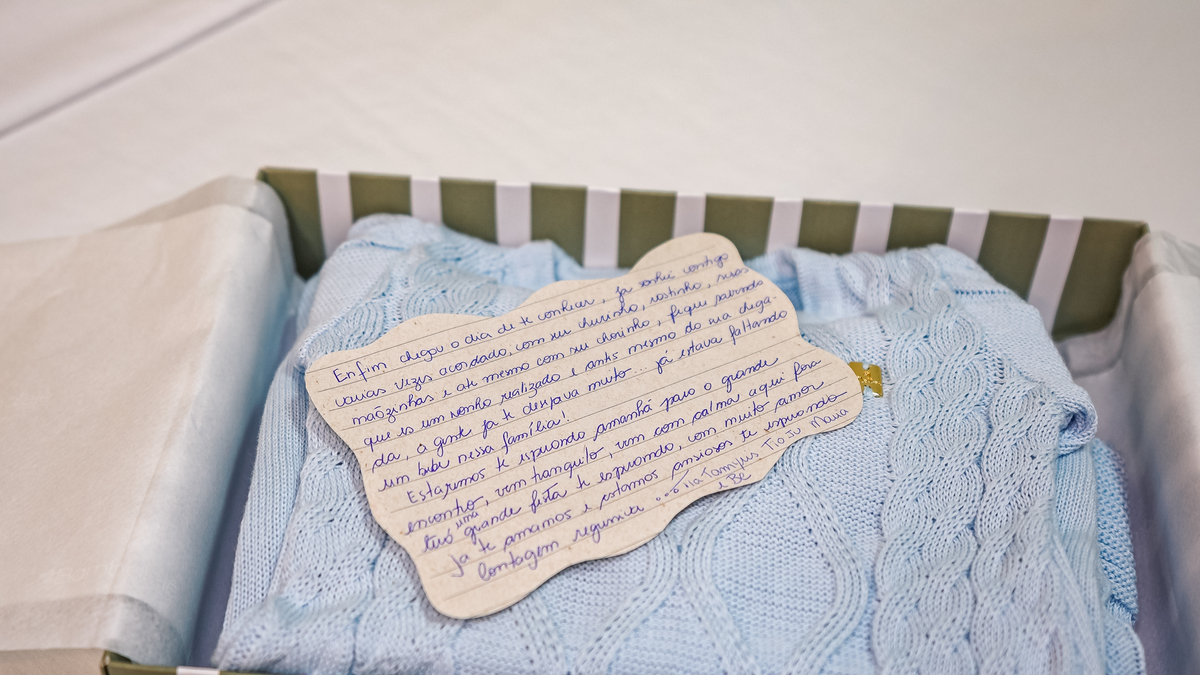 Enfim chegou o dia de te conhecer, já sonhei contigo
varias vezes acordado, com seu cheirinho, rostinho, suas
mãozinhas e até mesmo com seu chorinho, fique sabendo
que es um sonho realizado e antes mesmo da sua chega-
da, a gente já te desejava muito... já estava faltando
um bebe nessa família!
Estaremos te esperando amanhã para o grande
encontro, vem tranquilo, vem com calma aqui fora
terá uma grande festa te esperando, com muito amor
Já te amamos e estamos ansiosos te esperando
Contagem regressiva ...
Maria
e Be